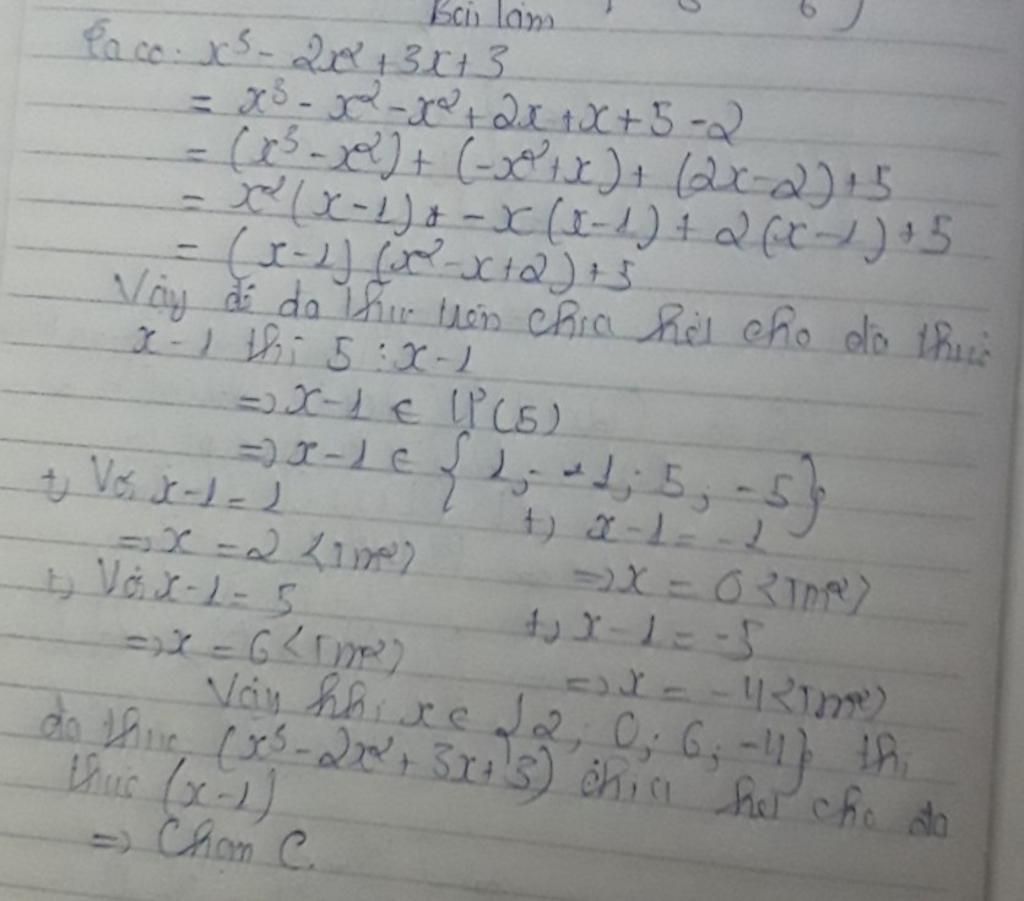 Bài làm
Ta có: x³ - 2x² + 3x + 3
= x³ - x² - x² + 2x + x + 5 - 2
= (x³ - x²) + (-x² + x) + (2x - 2) + 5
= x² (x - 1) + - x (x - 1) + 2 (x - 1) + 5
= (x - 1) (x² - x + 2) + 5
Vậy để đa thức trên chia hết cho đa thức
x - 1 thì 5 : x - 1
=> x - 1 ∈ Ư(5)
=> x - 1 ∈ { 1 ; -1 ; 5 ; -5 }
+, Với x - 1 = 1
+, x - 1 = -1
=> x = 2 <Tm>
=> x = 0 <Tm>
+, Với x - 1 = 5
+, x - 1 = -5
=> x = 6 <Tm>
=> x = -4 <Tm>
Vậy khi x ∈ {2 ; 0 ; 6 ; -4} thì
đa thức (x³ - 2x² + 3x + 3) chia hết cho đa
thức (x - 1)
=> Chọn C.